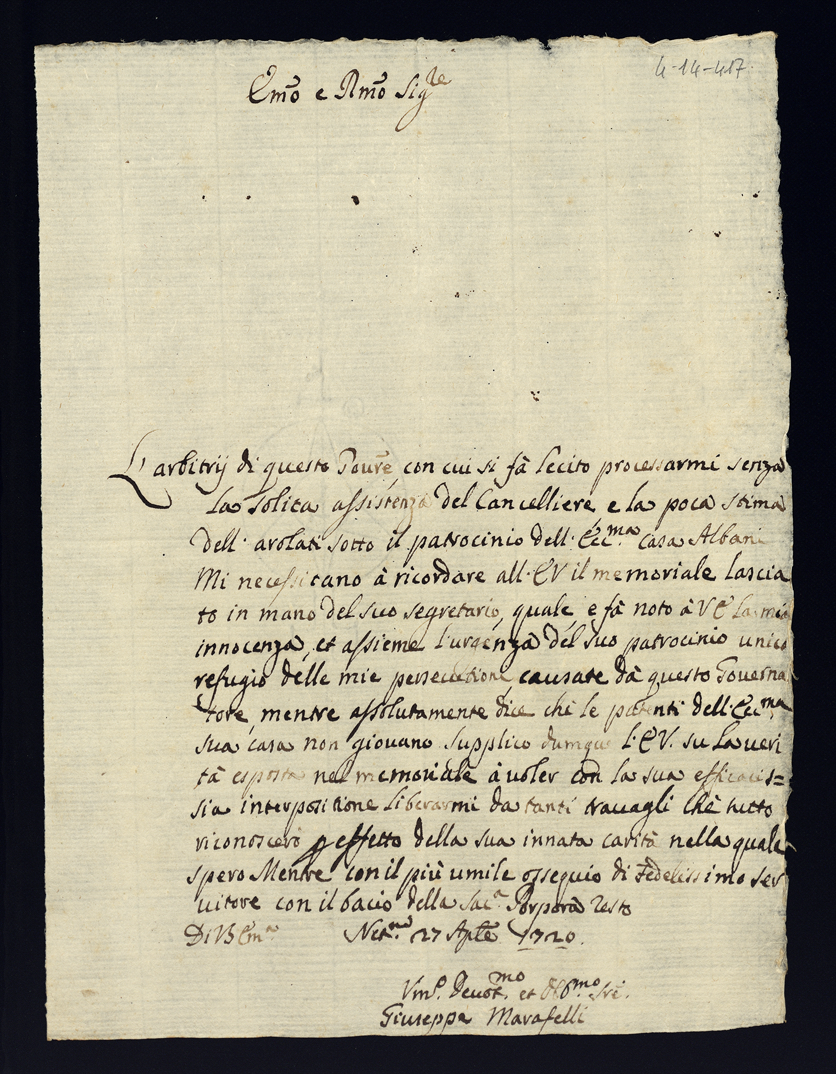 4-14-417.
Emo e Rmo Sigre
L'arbitrij di questo Goure, con cui si fà lecito processarmi senza
la solita assistenza del Cancelliere, e la poca stima
dell' arolati sotto il patrocinio dell' Eccma casa Albani
Mi necessitano à ricordare all' EV il memoriale lascia
to in mano del suo segretario, quale è fà noto à VE la mia
innocenza, et assieme l'urgenza del suo patrocinio unico
refugio delle mie persecutione causate dà questo Governa
tore, mentre assolutamente dice che le patenti dell' Eccma
sua casa non giovano supplico dumque l'EV. su la veri
tà esposta nel memoriale à voler con la sua efficacis=
sia interpositione liberarmi da tanti travagli che tutto
riconoscerò p effetto della sua innata carità nella quale
spero Mentre con il più umile ossequio di Fedelissimo ser
uitore con il bacio della Sac.a Porpora resto
Di V Em.a Net.no 27 Aple 1720.
Vm.o Deuot.mo et Obb.mo Sre.
Giuseppe Marafelli